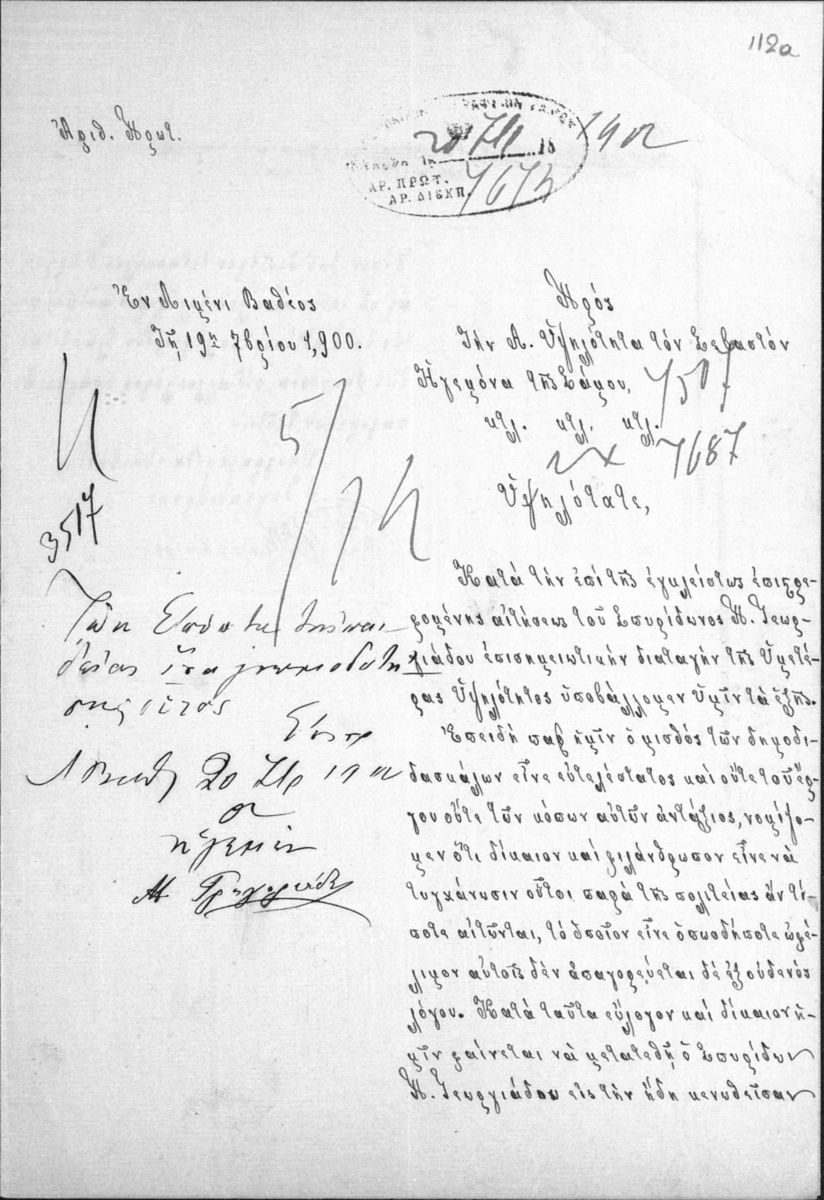 112a
Ἀριθ. Πρωτ.
18 1902
ΑΡ. ΠΡΩΤ. 7673
ΑΡ. ΔΙΕΚΠ.
Ἐν Λιμένι Βαθέος
Τῇ 19ῃ 7βρίου 1,900.
Πρός
Τὴν Α. Ὑψηλότητα τὸν Σεβαστὸν
Ἡγεμόνα τῆς Σάμου,
κτλ. κτλ. κτλ.
7687
Ὑψηλότατε,
3517
Κατὰ τὴν ἐπὶ τῆς ἐγκλείστως ἐπιστρε-
φομένης αἰτήσεως τοῦ Σπυρίδωνος Π. Γεωρ-
γιάδου ἐπισημειωτικὴν διαταγὴν τῆς Ὑμετέ-
ρας Ὑψηλότητος ὑποβάλλομεν ὑμῖν τὰ ἑξῆς.
Ἐπειδὴ παρ' ἡμῖν ὁ μισθὸς τῶν δημοδι-
δασκάλων εἶνε εὐτελέστατος καὶ οὔτε τοῦ ἔρ-
γου οὔτε τῶν κόπων αὐτῶν ἀντάξιος, νομίζο-
μεν ὅτι δίκαιον καὶ φιλάνθρωπον εἶνε νὰ
τυγχάνωσιν οὗτοι παρὰ τῆς πολιτείας ἄν τί-
ποτε αἰτῶνται, τὸ ὁποῖον εἶνε ὁπωσδήποτε ὠφέ-
λιμον αὐτοῖς δὲν ἀπαγορεύεται δὲ ἐξ οὐδενὸς
λόγου. Κατὰ ταῦτα εὔλογον καὶ δίκαιον ἡ-
μῖν φαίνεται νὰ μετατεθῇ ὁ Σπυρίδων
Π. Γεωργιάδου εἰς τὴν ἤδη κενωθεῖσαν
ἵνα γνωμοδοτή
σῃ
20 7βρ
Ο
Ἡγεμὼν
Μ Γρηγοριάδης